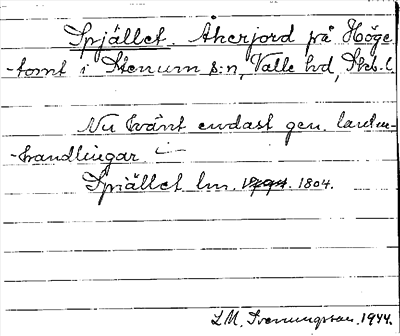 Spjället. Åkerjord på Höge
-tomt i Stenum s:n, Valle hd, Skb. l.
Nu känt endast gen. lantm-
-handlingar
Spjället lm. 1804.
L.M. Svenungsson 1944.